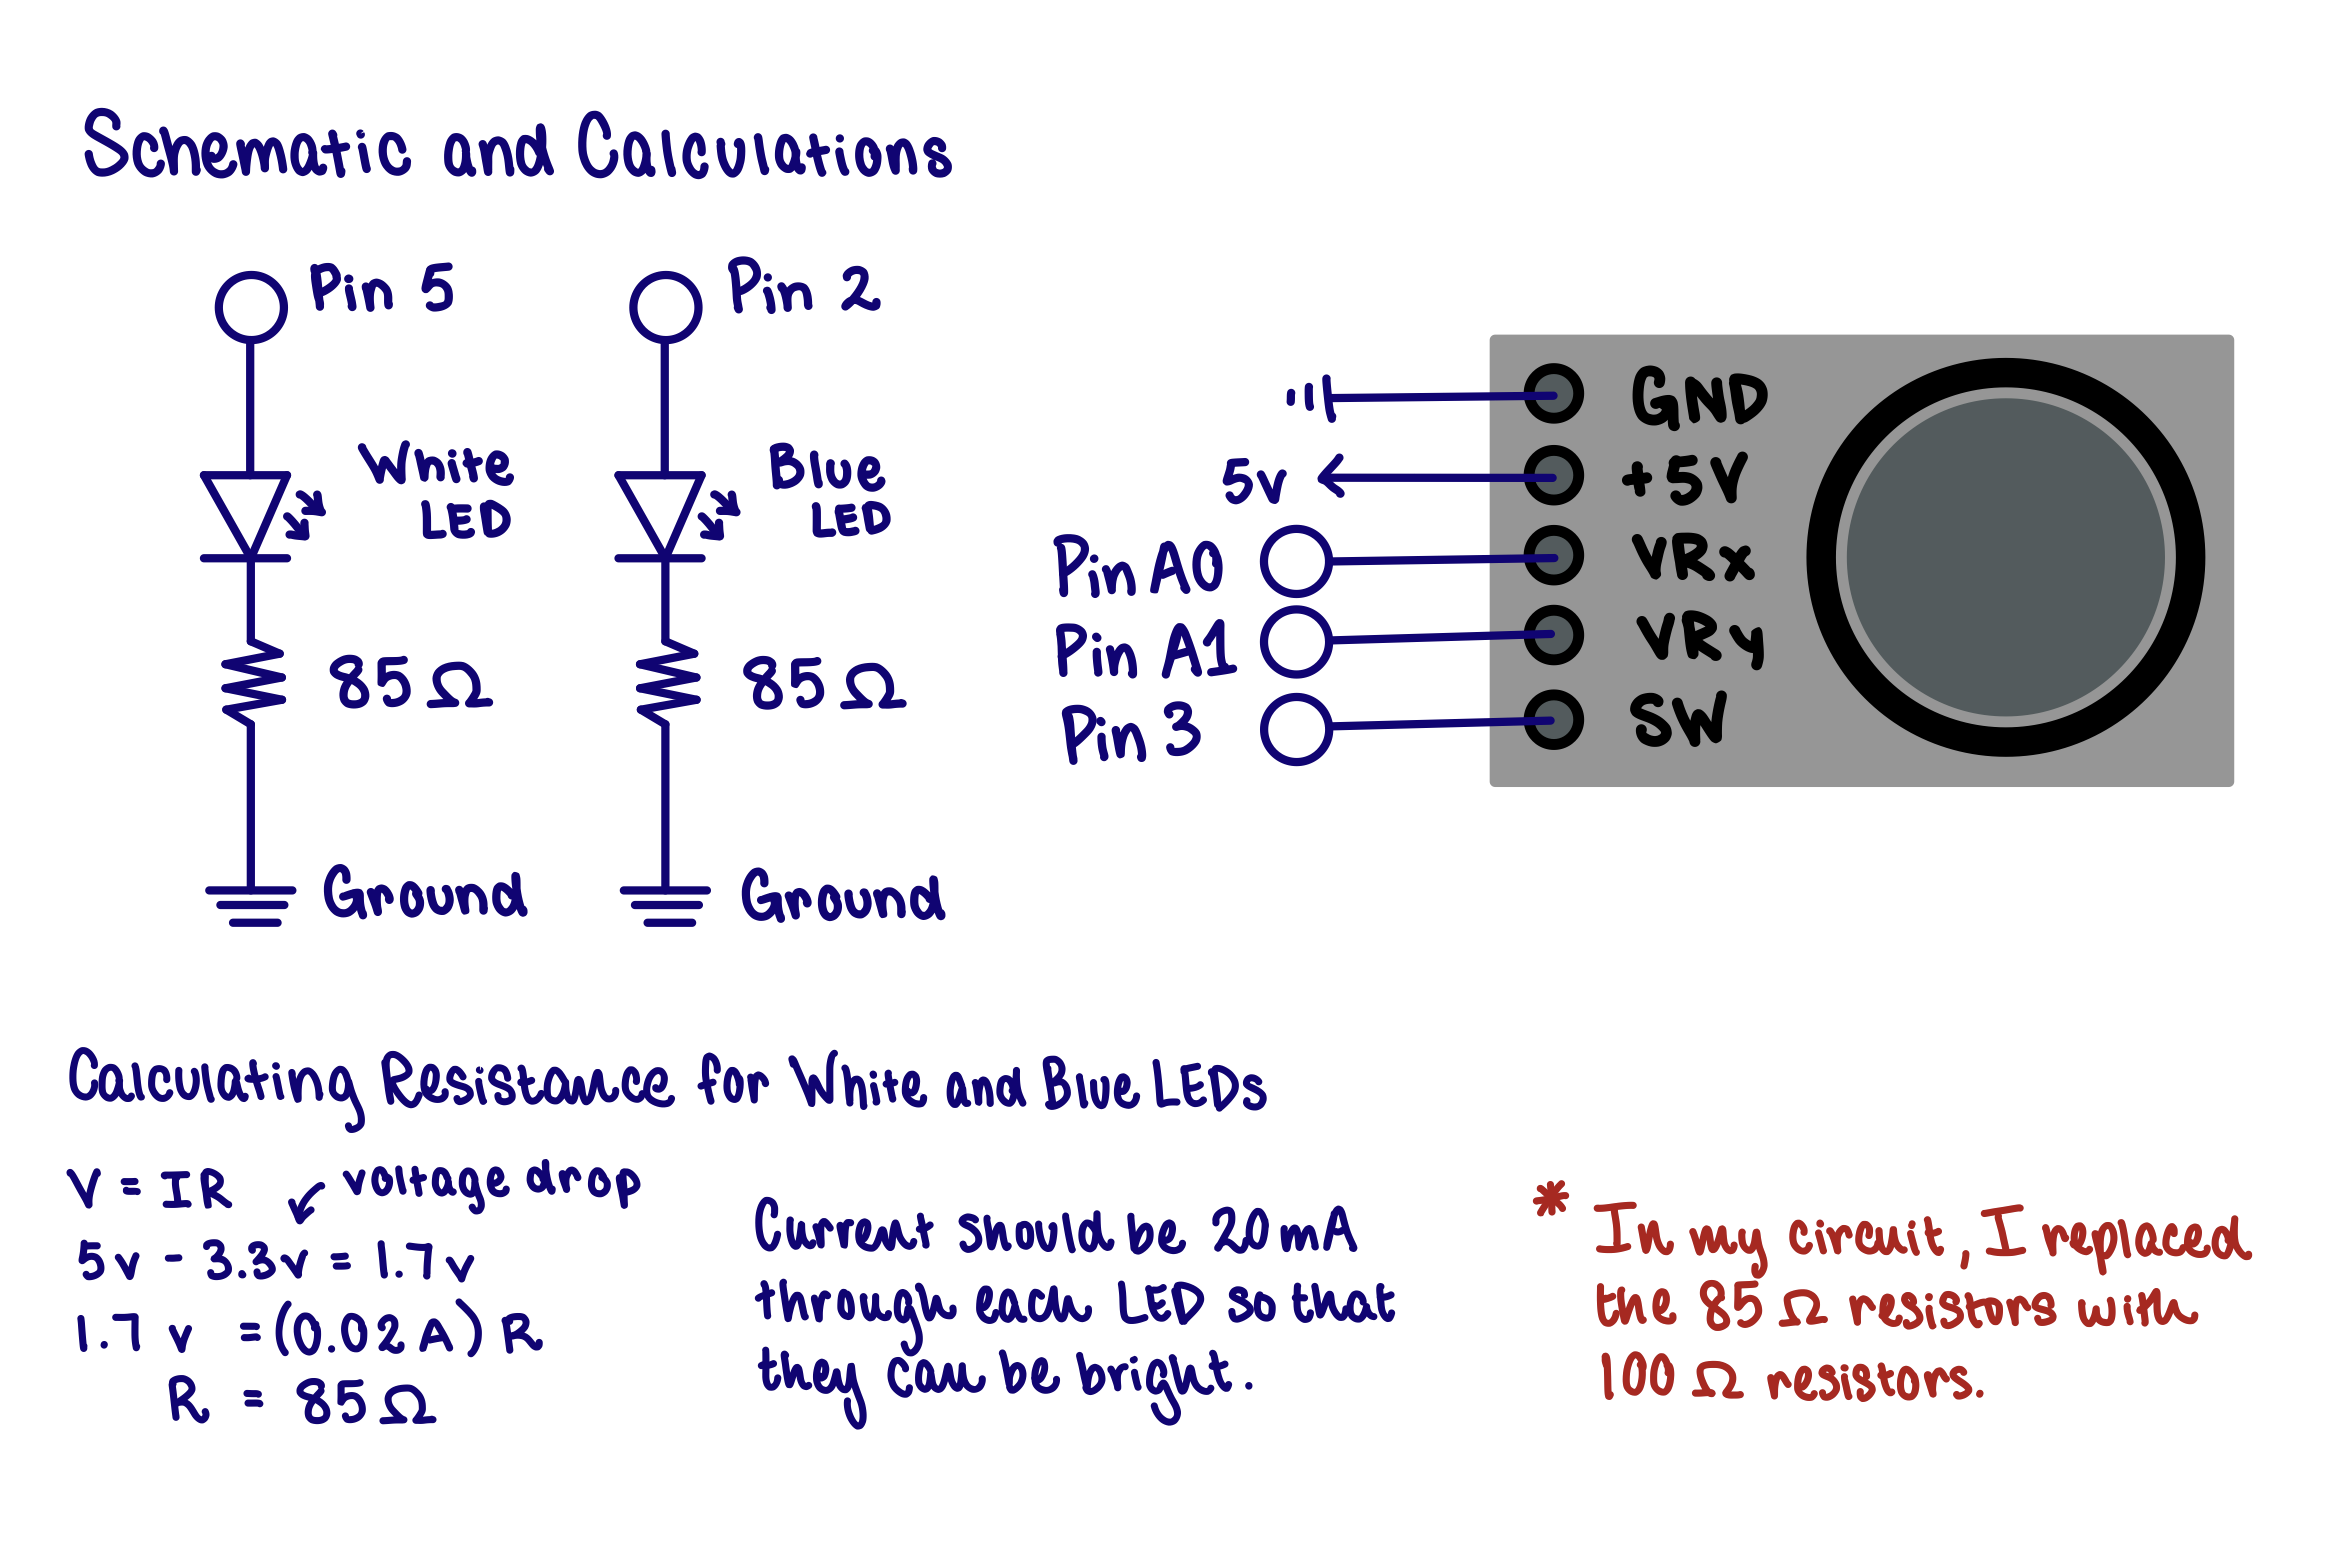 Schematic and Calculations
Pin 5
Pin 2
White
LED
Blue
LED
85 Ω
85 Ω
Ground
Ground
GND
5v
+5V
Pin A0
VRx
Pin A1
VRy
Pin 3
SW
Calculating Resistance for White and Blue LEDs
V = IR
voltage drop
5v - 3.3v = 1.7v
1.7 v = (0.02 A) R
R = 85 Ω
Current should be 20 mA
through each LED so that
they can be bright.
* In my circuit, I replaced
the 85 Ω resistors with
100 Ω resistors.